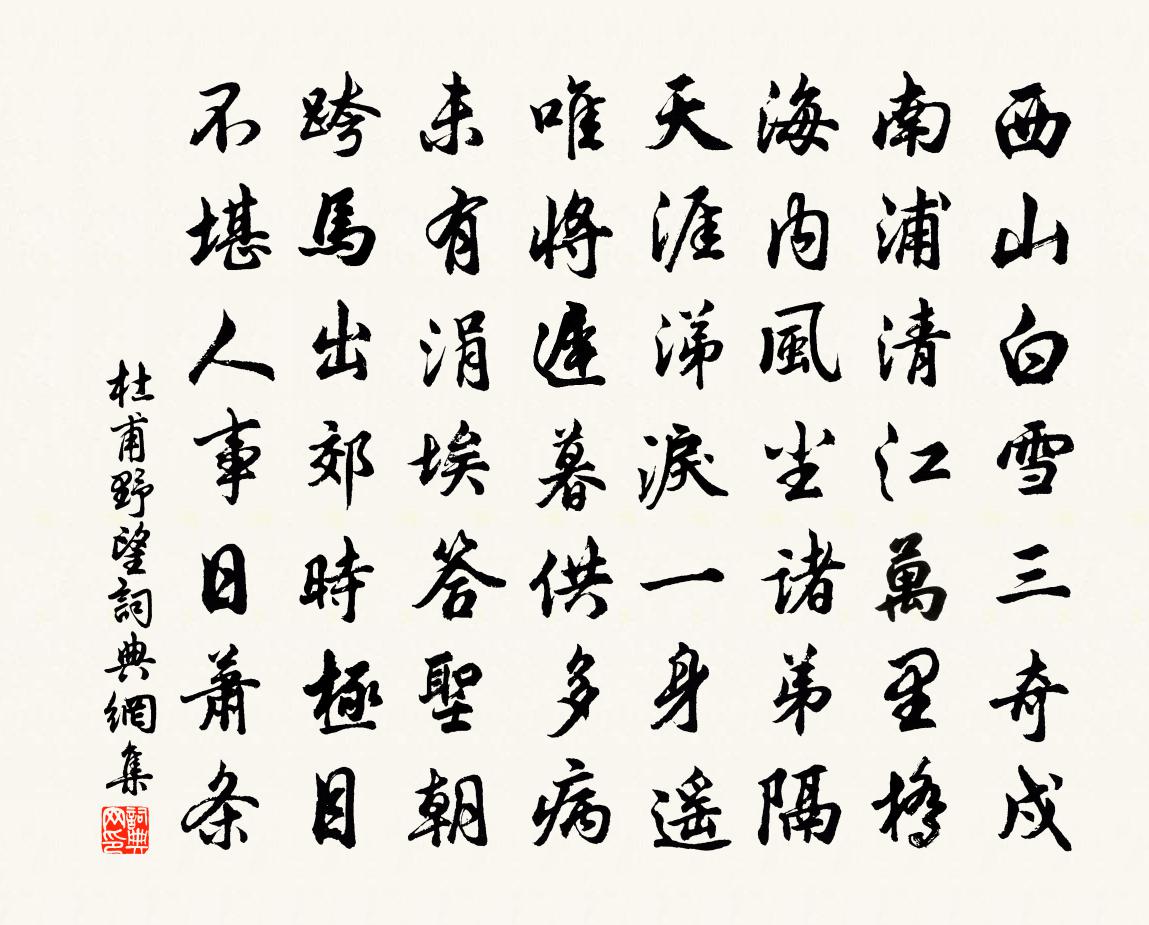 西山白雪三奇戍
南浦清江萬里橋
海内風尘諸弟隔
天涯涕淚一身遥
唯將遲暮供多病
未有涓埃答聖朝
跨馬出郊時極目
不堪人事日蕭条
杜甫野望詞典網集
詞典网印